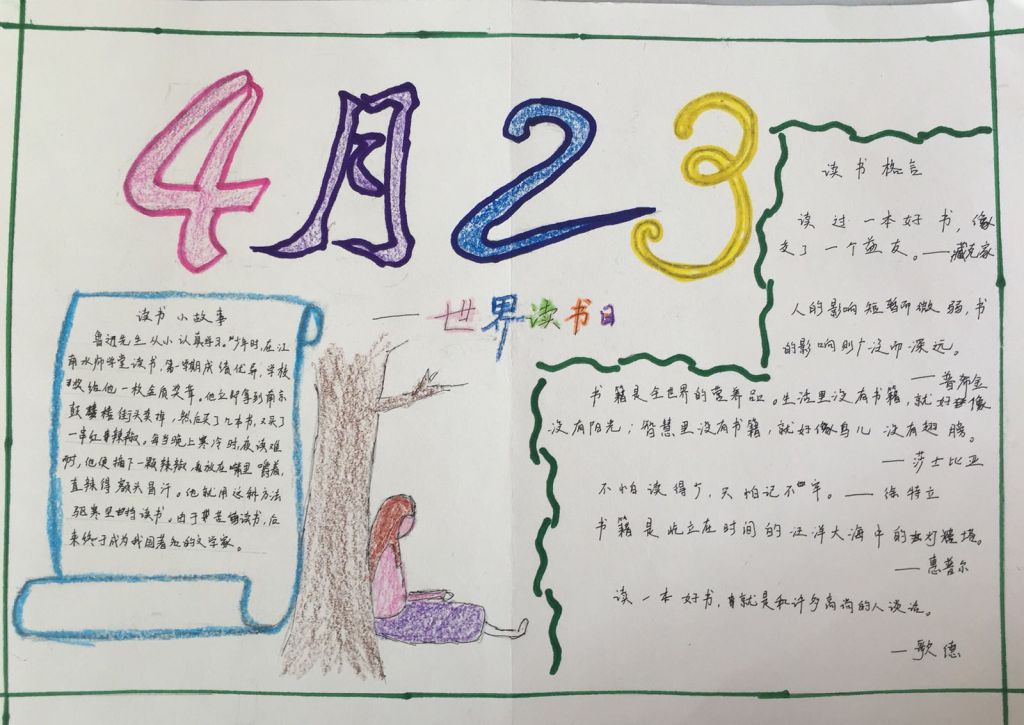 4月23
—世界读书日
读书小故事
鲁迅先生从小认真学习。少年时,在江
南水师学堂读书,第一学期成绩优异,学校
奖给他一枚金质奖章。他立即拿到南京
鼓楼街头卖掉,然后买了几本书,又买了
一串红辣椒。每当晚上寒冷时,夜读难
耐,他便摘下一颗辣椒,放在嘴里嚼着,
直辣得额头冒汗。他就用这种方法
驱寒坚持读书。由于苦读书,后
来终于成为我国著名的文学家。
读书格言
读过一本好书,像
交了一个益友。——臧克家
人的影响短暂而微弱,书
的影响则广泛而深远。
—普希金
书籍是全世界的营养品。生活里没有书籍,就好像
没有阳光;智慧里没有书籍,就好像鸟儿没有翅膀。
—莎士比亚
不怕读得少,只怕记不牢。——徐特立
书籍是屹立在时间的汪洋大海中的灯塔。
—惠普尔
读一本好书,就是和许多高尚的人谈话。
—歌德